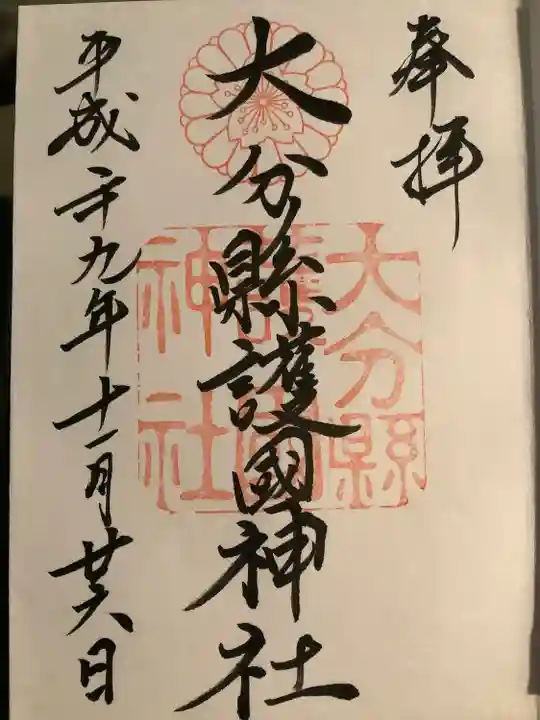 奉拝
大分縣護國神社
大分縣
護國
神社
平成廿九年十一月廿六日